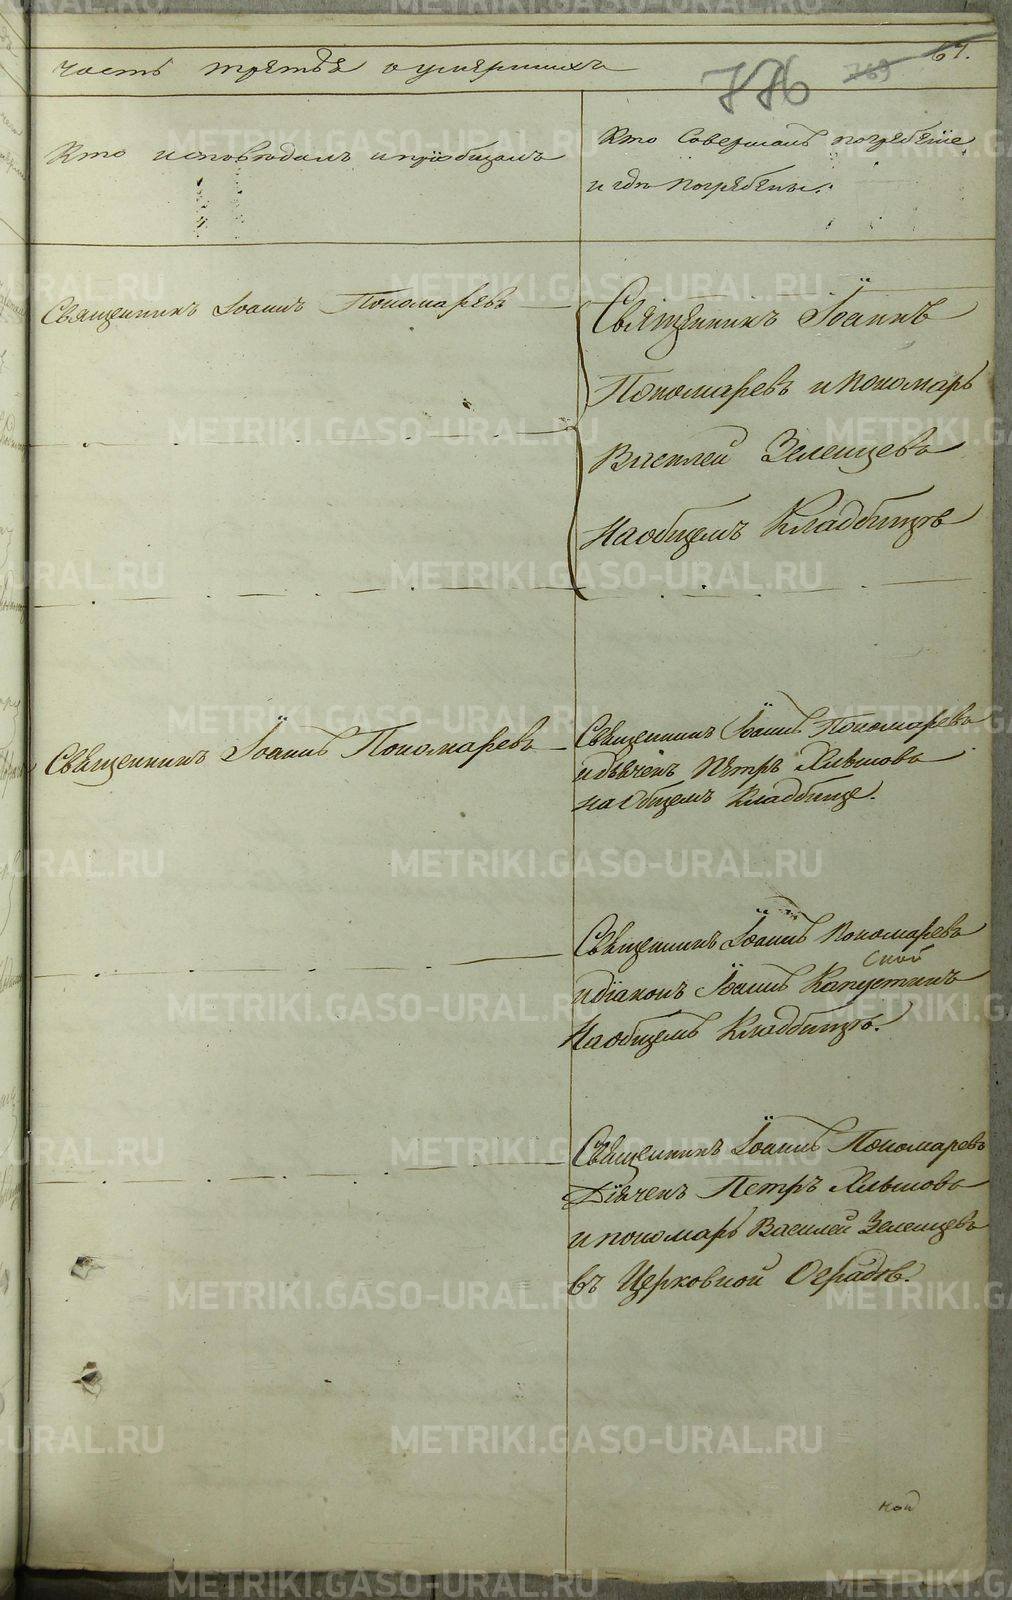 часть третья о умершихъ
776 769 67.
Кто исповѣдалъ и пріобщалъ
Кто совершалъ погребеніе
и гдѣ погребены.
Священникъ Іоаннъ Пономаревъ
Священникъ Іоаннъ
Пономаревъ и пономарь
Василей Зеленцевъ
На общемъ Кладбищѣ
Священникъ Іоаннъ Пономаревъ
Священникъ Іоаннъ Пономаревъ
и дьячекъ Петръ
на общемъ Кладбище.
Священникъ Іоаннъ Пономаревъ
и діаконъ Іоаннъ Капустинской
На общемъ Кладбищѣ.
Священникъ Іоаннъ Пономаревъ
Дьячекъ Петръ
и пономарь Василей Зеленцевъ
въ Церковной Оградѣ.
METRIKI.GASO-URAL.RU